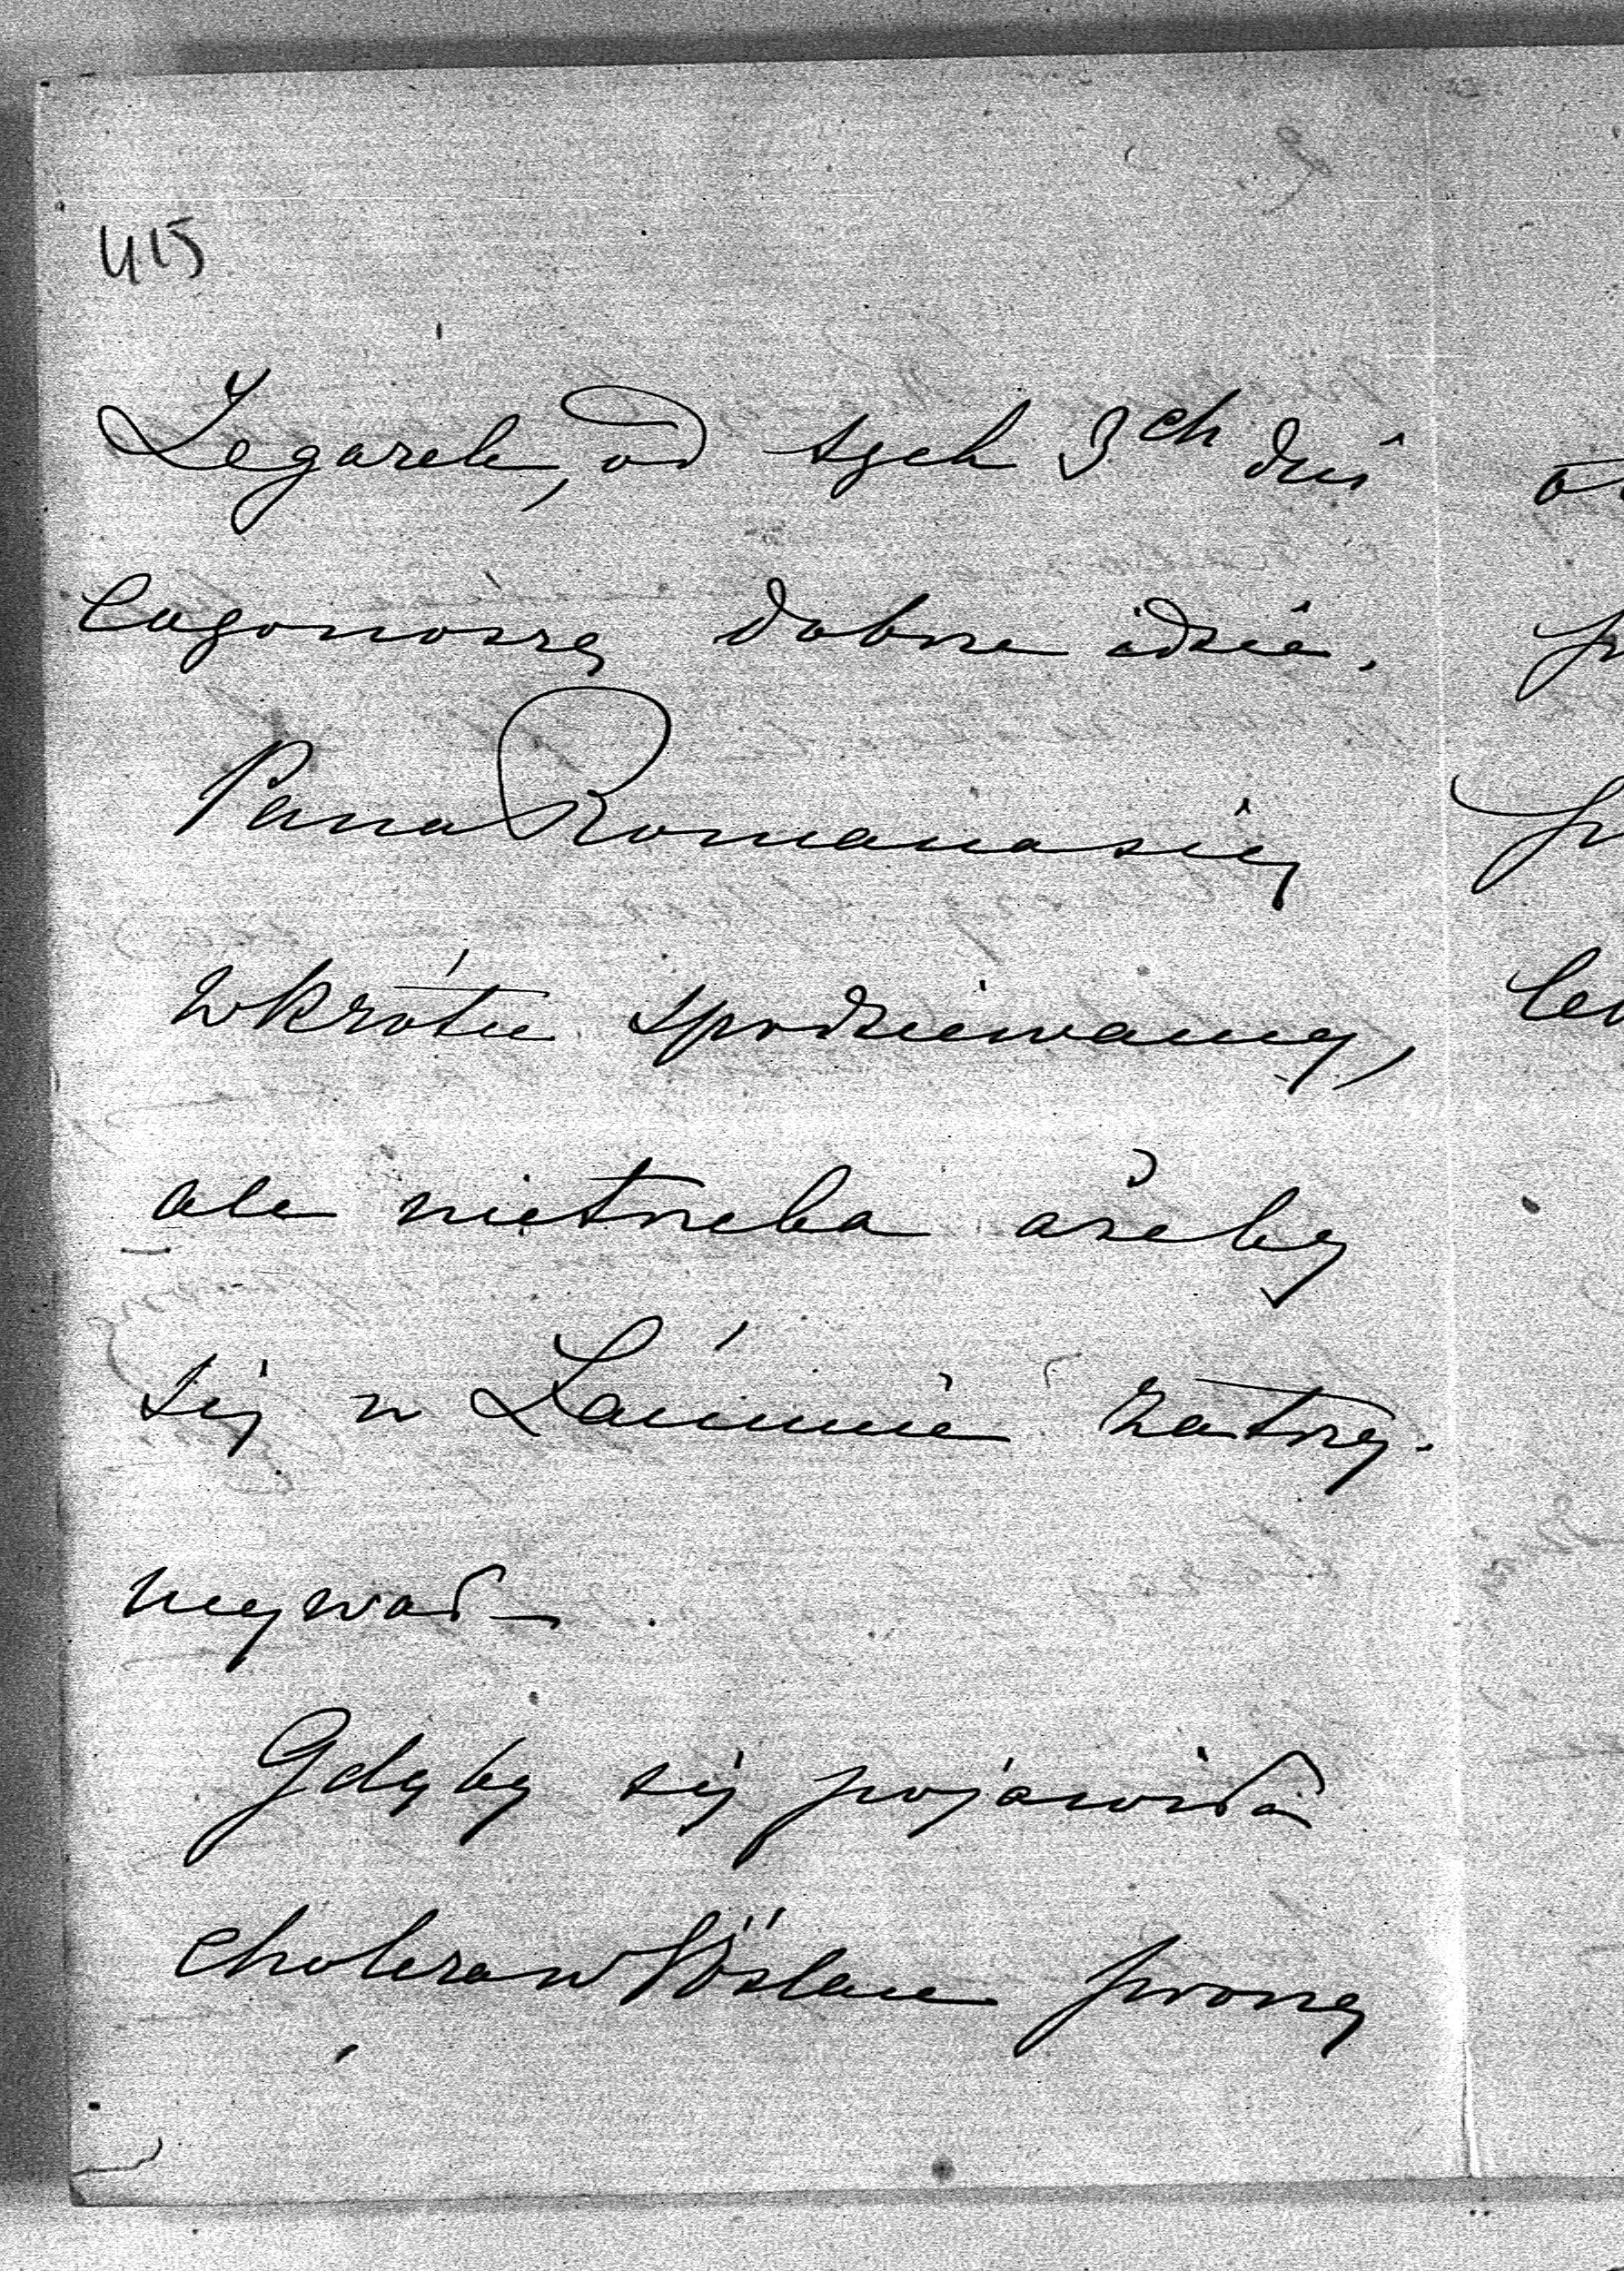 415
Zegarek, od tych 3ch dni
co go noszę dobrze idzie.
Pana Romana się
wkrótce spodziewamy,
ale nietrzeba ażeby
się w Łańcucie zatrzy-
mywał.
Gdyby się pojawiła
cholera w Vöslau proszę